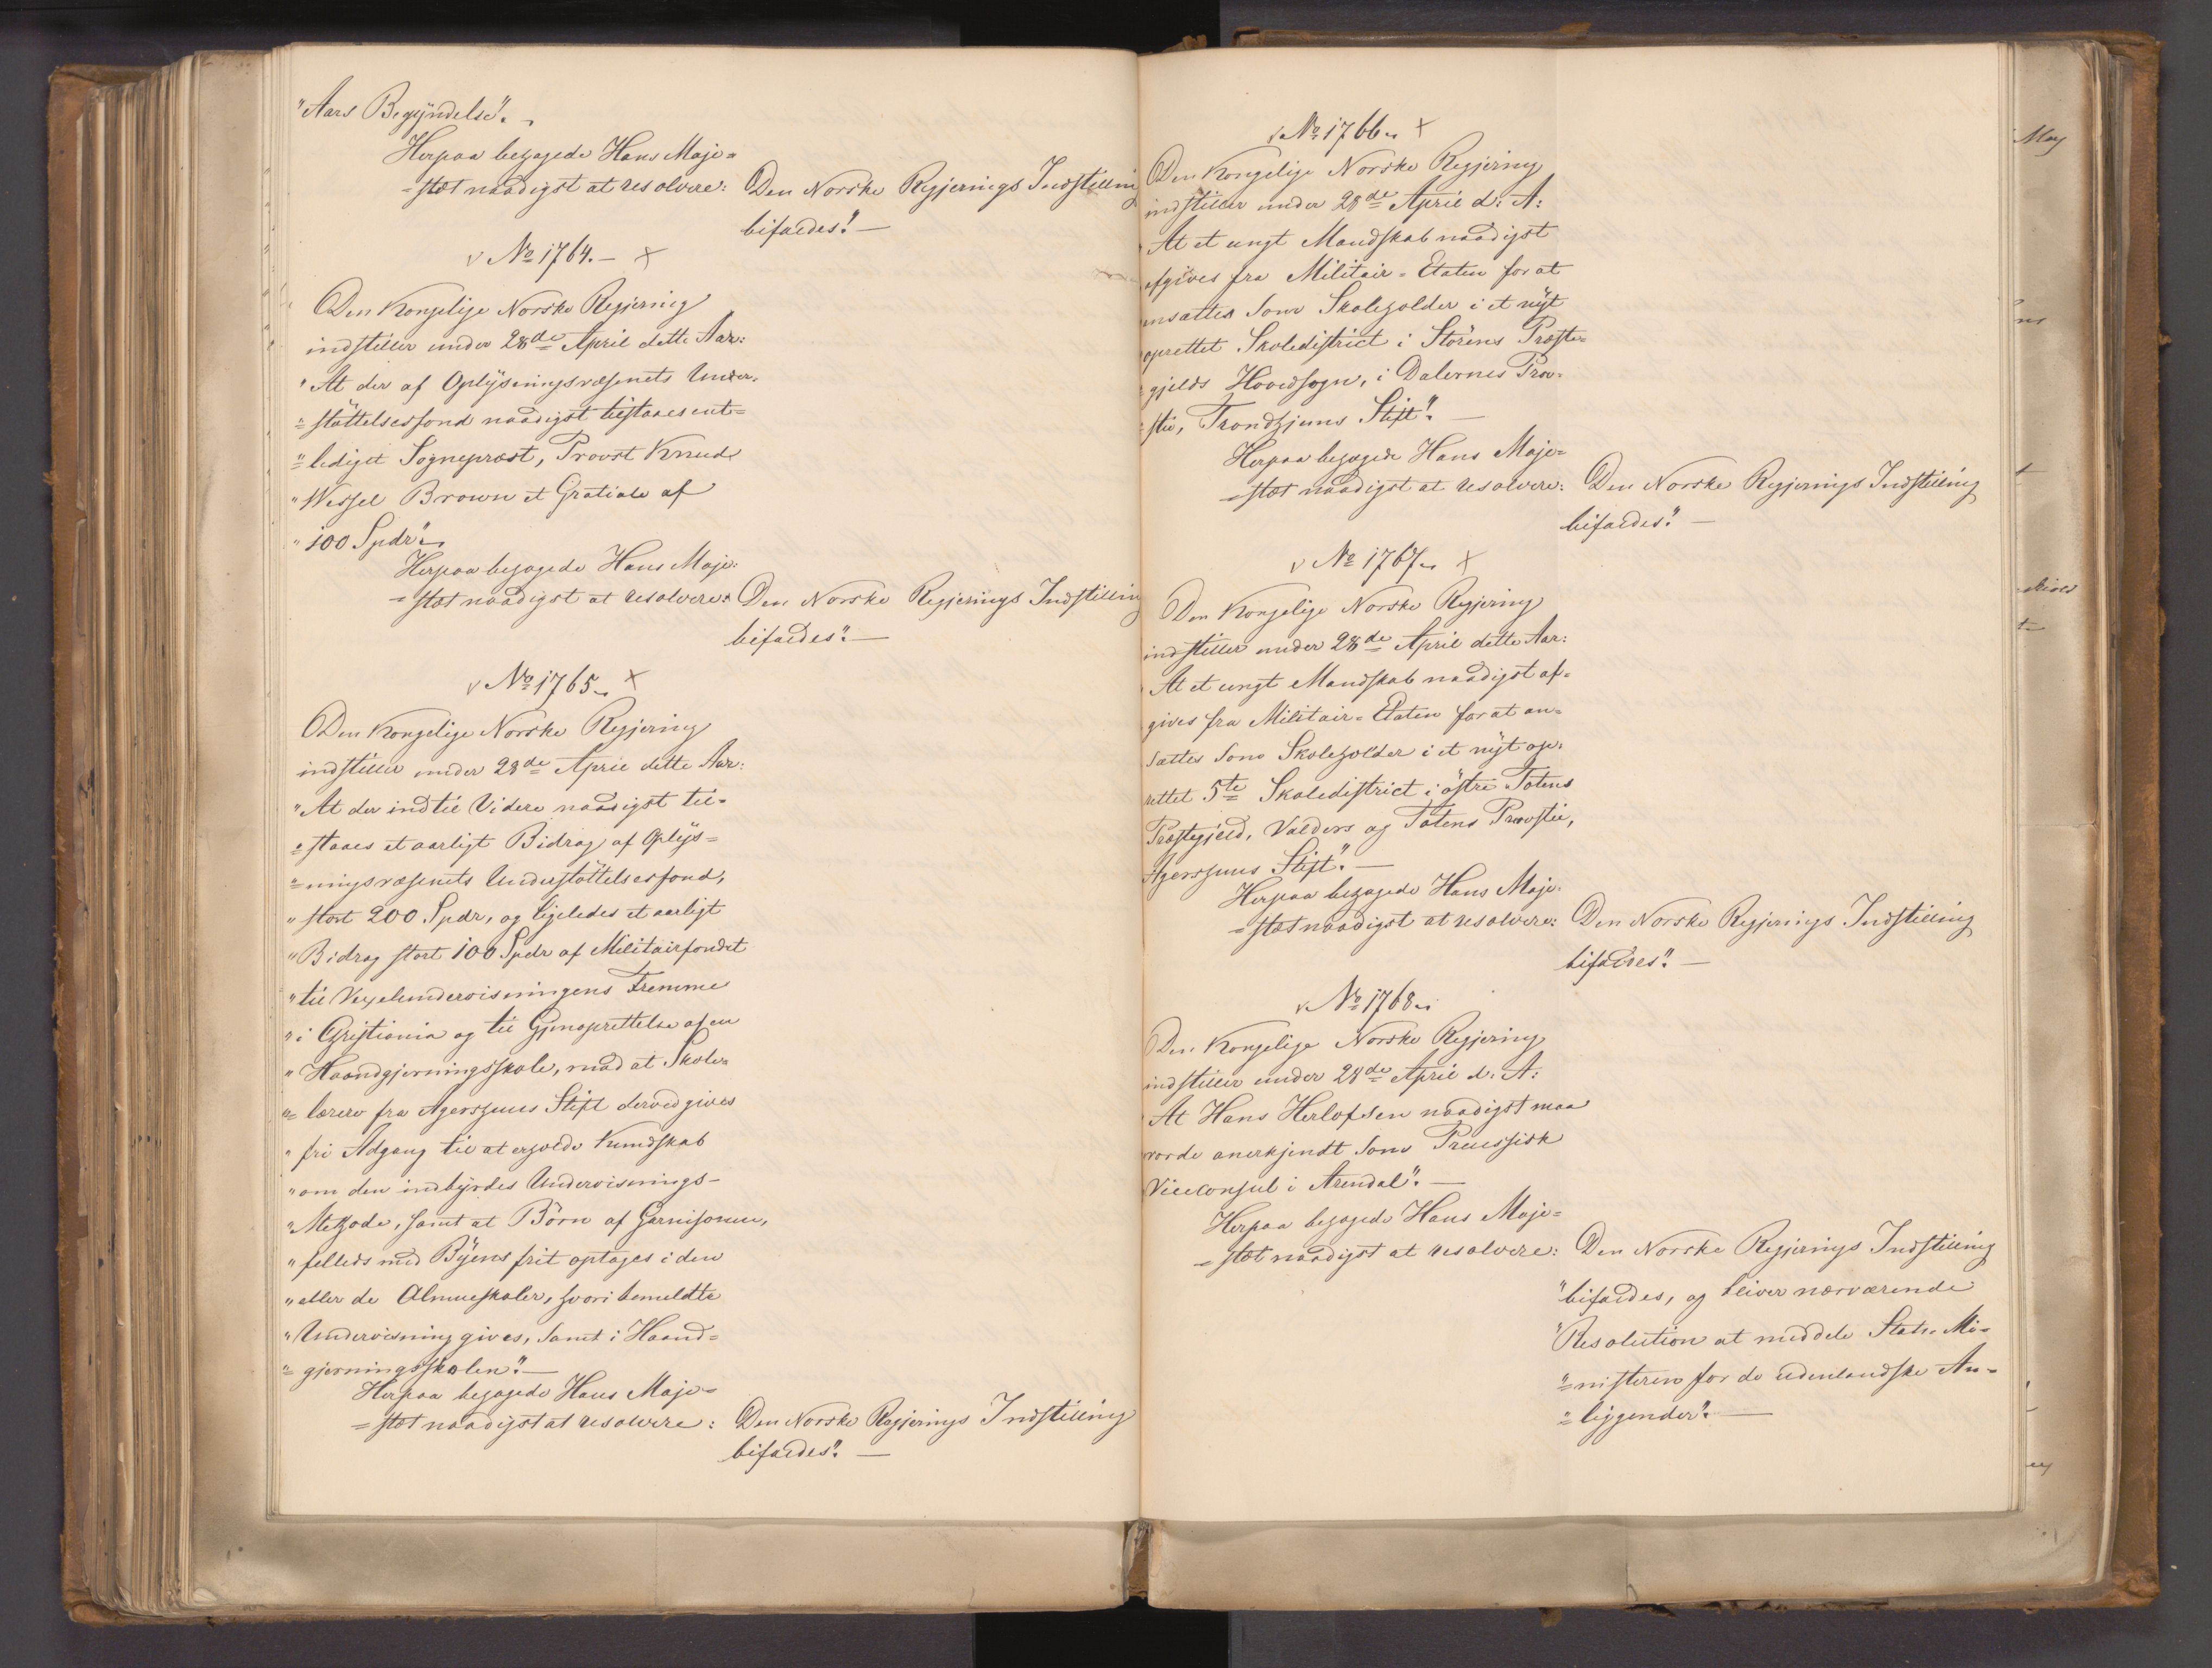 "Aars Begyndelse". –
Herpaa behagede Hans Maje=
=stæt naadigst at resolvere: Den Norske Regjerings Indstilling
bifaldes". –
√ No 1764. – ×
Den Kongelige Norske Regjering
indstiller under 28de April dette Aar:
"At der af Oplysningsvæsenets Under=
"=støttelsesfond naadigst tilstaaes ent=
"=lediget Sognepræst, Provst Knud
"Wessel Brown et Gratiale af
"100 Spdr". –
Herpaa behagede Hans Maje=
=stæt naadigst at resolvere: Den Norske Regjerings Indstilling
bifaldes". –
√ No 1765. ×
Den Kongelige Norske Regjering
indstiller under 28de April dette Aar:
"At der indtil Videre naadigst til=
"=staaes et aarligt Bidrag af Oplys=
"=ningsvæsenets Understøttelsesfond,
"stort 200 Spdr, og ligeledes et aarligt
"Bidrag stort 100 Spdr af Militairfondet
"til Vexelundervisningens Fremme
"i Christiania og til Gjenoprettelse af en
"Haandgjerningsskole, mod at Skole=
"=lærere fra Agershuus Stift derved gives
"fri Adgang til at erholde Kundskab
"om den indbyrdes Undervisnings-
"Methode, samt at Børn af Garnisonen,
"felleds med Byens frit optages i den
"eller de Almueskoler, hvori bemeldte
"Undervisning gives, samt i Haand=
"=gjerningsskolen". –
Herpaa behagede Hans Maje=
=stæt naadigst at resolvere: Den Norske Regjerings Indstilling
bifaldes". –
√ No 1766. ×
Den Kongelige Norske Regjering
indstiller under 28de April d: A:
At et ungt Mandskab naadigst
afgives fra Militair=Etaten for at
ansættes som Skoleholder i et nyt
oprettet Skoledistrict i Størens Præste=
=gjelds Hovedsogn, i Dalernes Prov=
=stie, Trondhjems Stift". –
Herpaa behagede Hans Maje=
=stæt naadigst at resolvere: Den Norske Regjerings Indstilling
bifaldes". –
√ No 1767. ×
Den Kongelige Norske Regjering
indstiller under 28de April dette Aar:
At et ungt Mandskab naadigst af=
gives fra Militair=Etaten for at an=
sættes som Skoleholder i et nyt op=
rettet 5te Skoledistrict i østre Totens
Præstegjeld, Valders og Totens Provstie,
Agershuus Stift". –
Herpaa behagede Hans Maje=
=stæt naadigst at resolvere: Den Norske Regjerings Indstilling
bifaldes". –
√ No 1768.
Den Kongelige Norske Regjering
indstiller under 28de April d: A:
At Hans Herlofsen naadigst maa
vorde anerkjendt som Preussisk
Viceconsul i Arendal". –
Herpaa behagede Hans Maje=
=stæt naadigst at resolvere: Den Norske Regjerings Indstilling
"bifaldes, og bliver nærværende
"Resolution at meddele Stats-Mi=
"=nisteren for de udenlandske An=
"=liggender". –
May